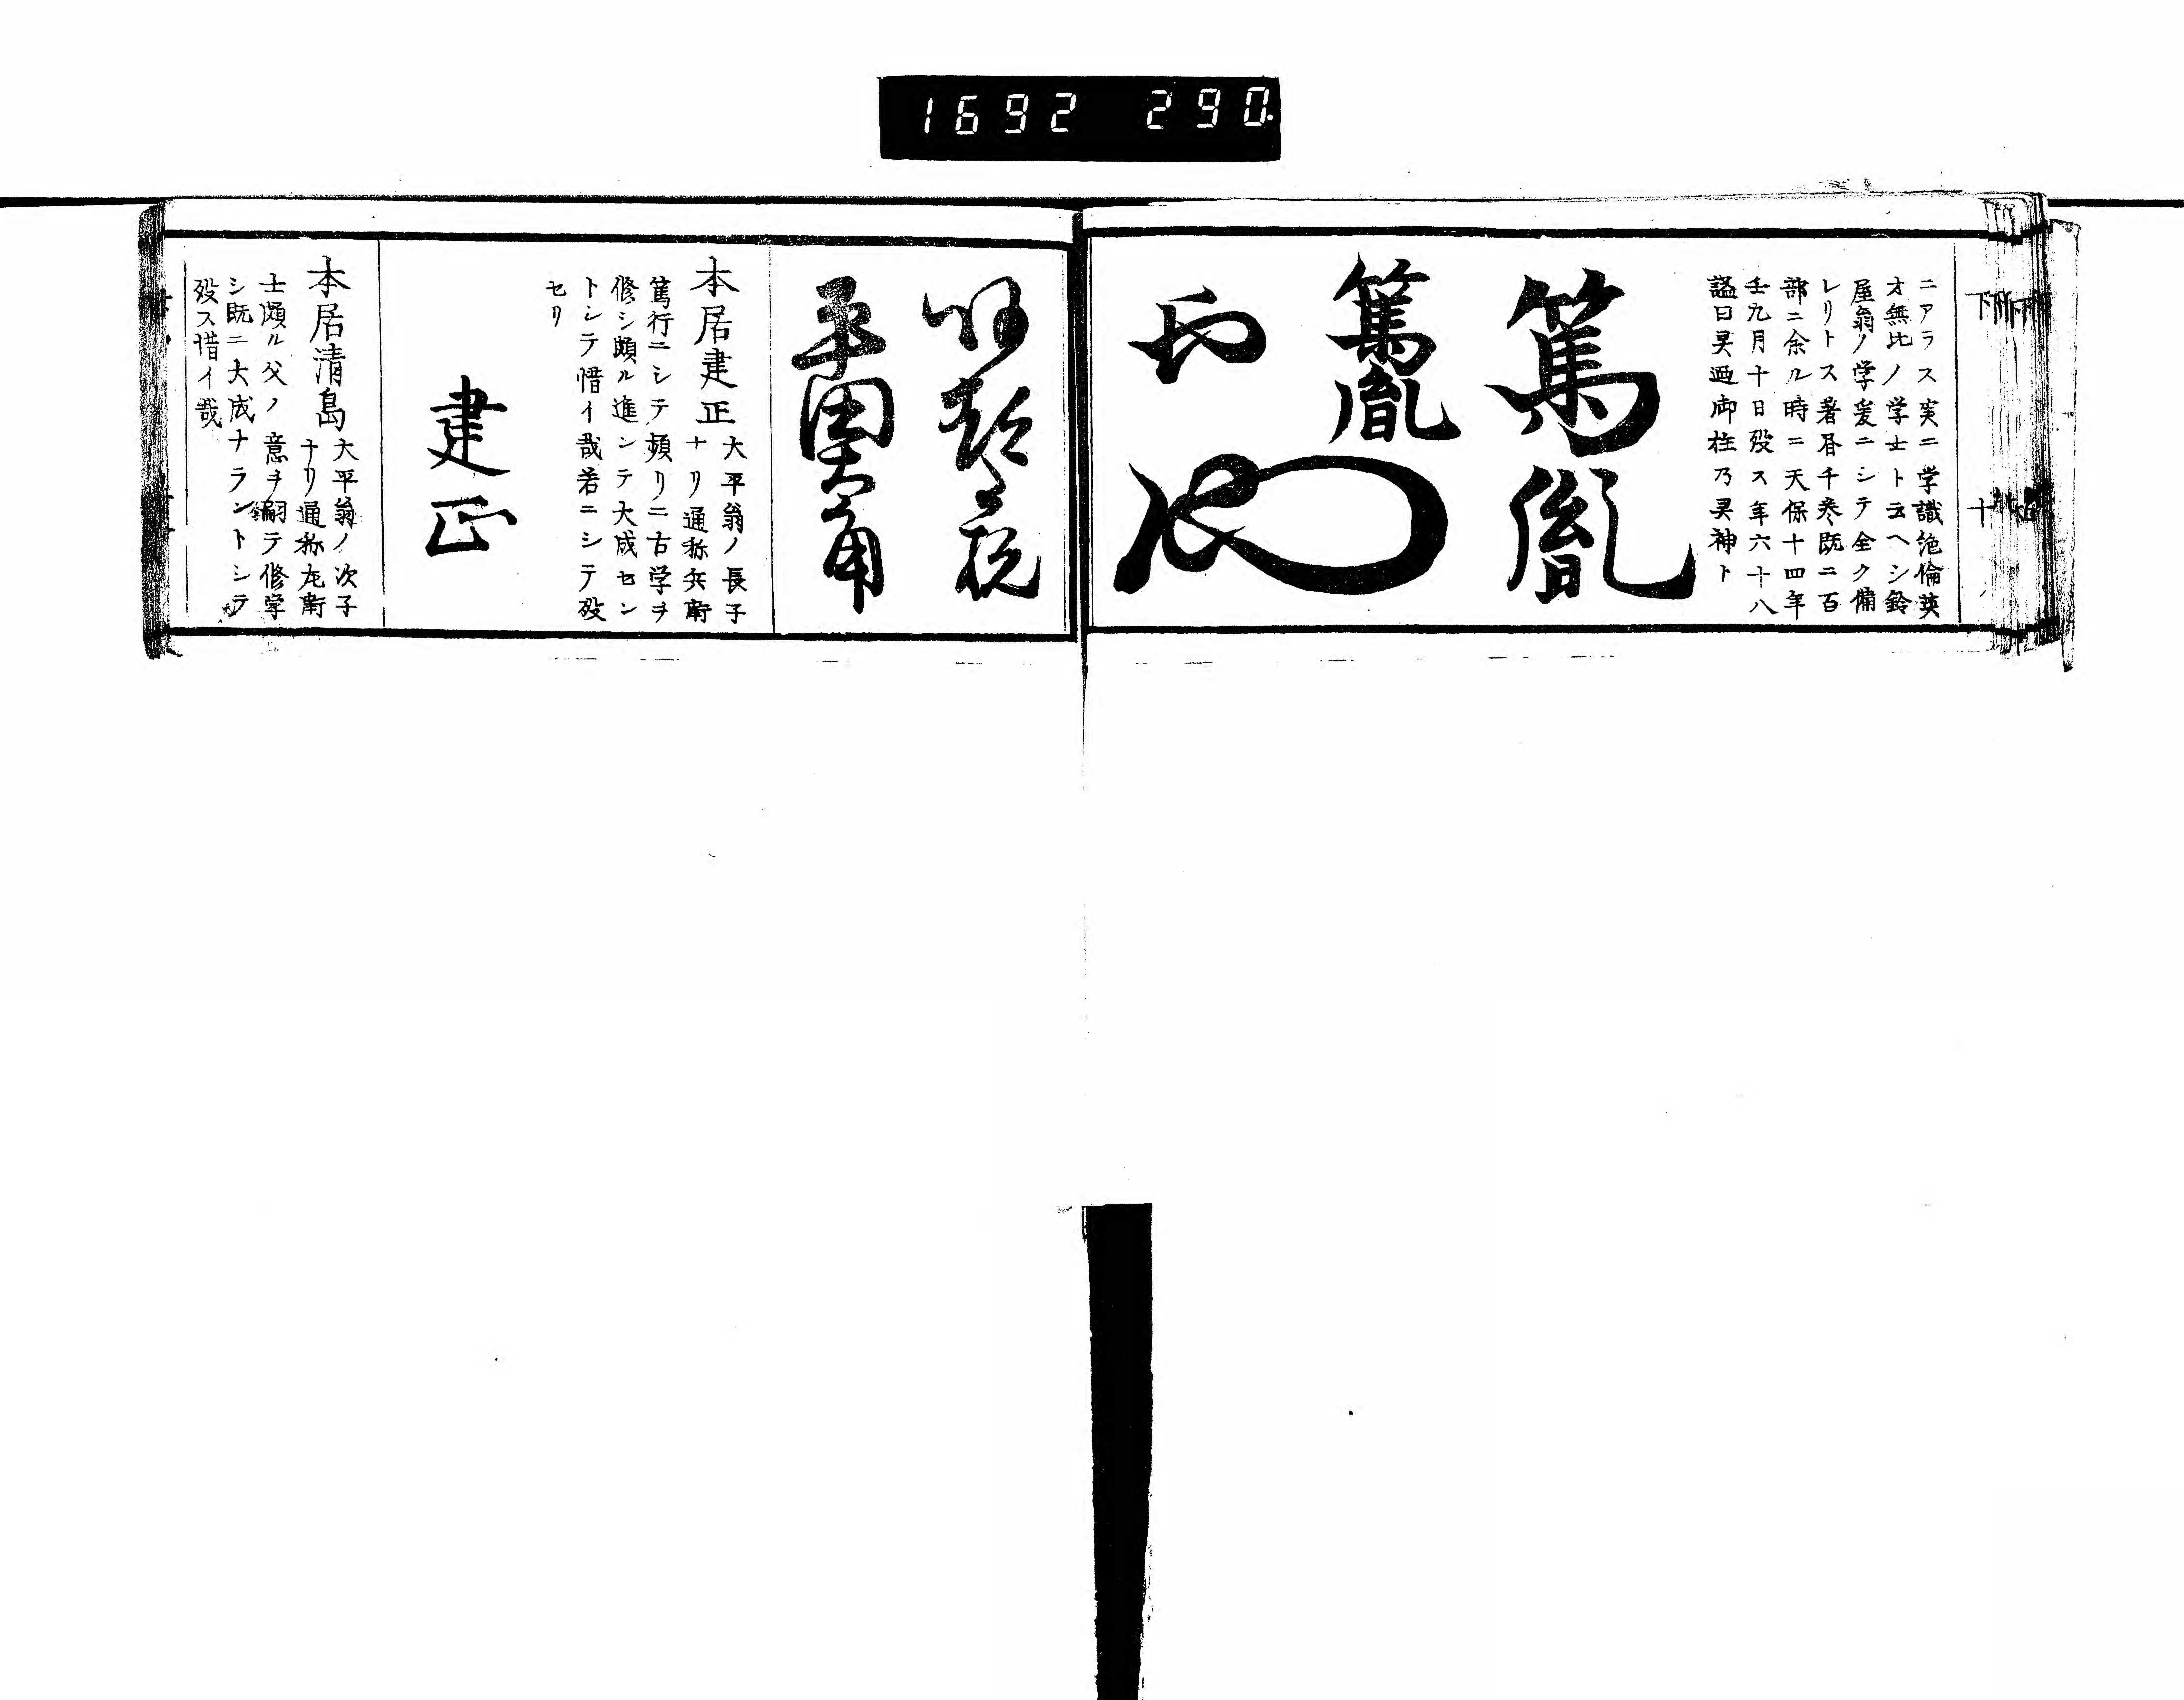 1692 290.
下 十
ニアラス実ニ学識絶倫英
才無比ノ学士ト云ヘシ鈴
屋翁ノ学爰ニシテ全ク備
レリトス著昏千巻既ニ百
部ニ余ル時ニ天保十四年
壬九月十日歿ス年六十八
謚曰㚑廼御柱乃㚑神ト
篤胤
篤胤
平田大角
本居建正
大平翁ノ長子
ナリ通称兵衛
篤行ニシテ頻リニ古学ヲ
修シ頗ル進ンテ大成セン
トシテ惜イ哉若ニシテ歿
セリ
建正
本居清島
大平翁ノ次子
ナリ通称左衛
士頗ル父ノ意ヲ嗣テ修学
シ既ニ大成ナラントシテ
歿ス惜イ哉